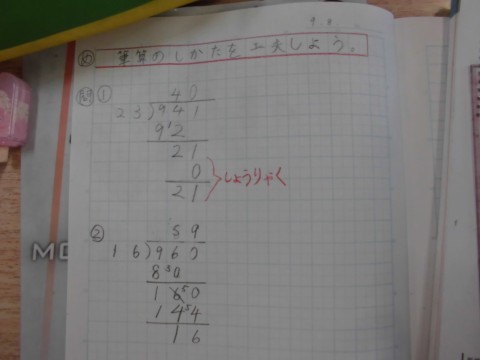 筆算のしかたを工夫しよう。
①
40
23)941
92
21
0
21
しょうりゃく
②
59
16)960
80
160
144
16